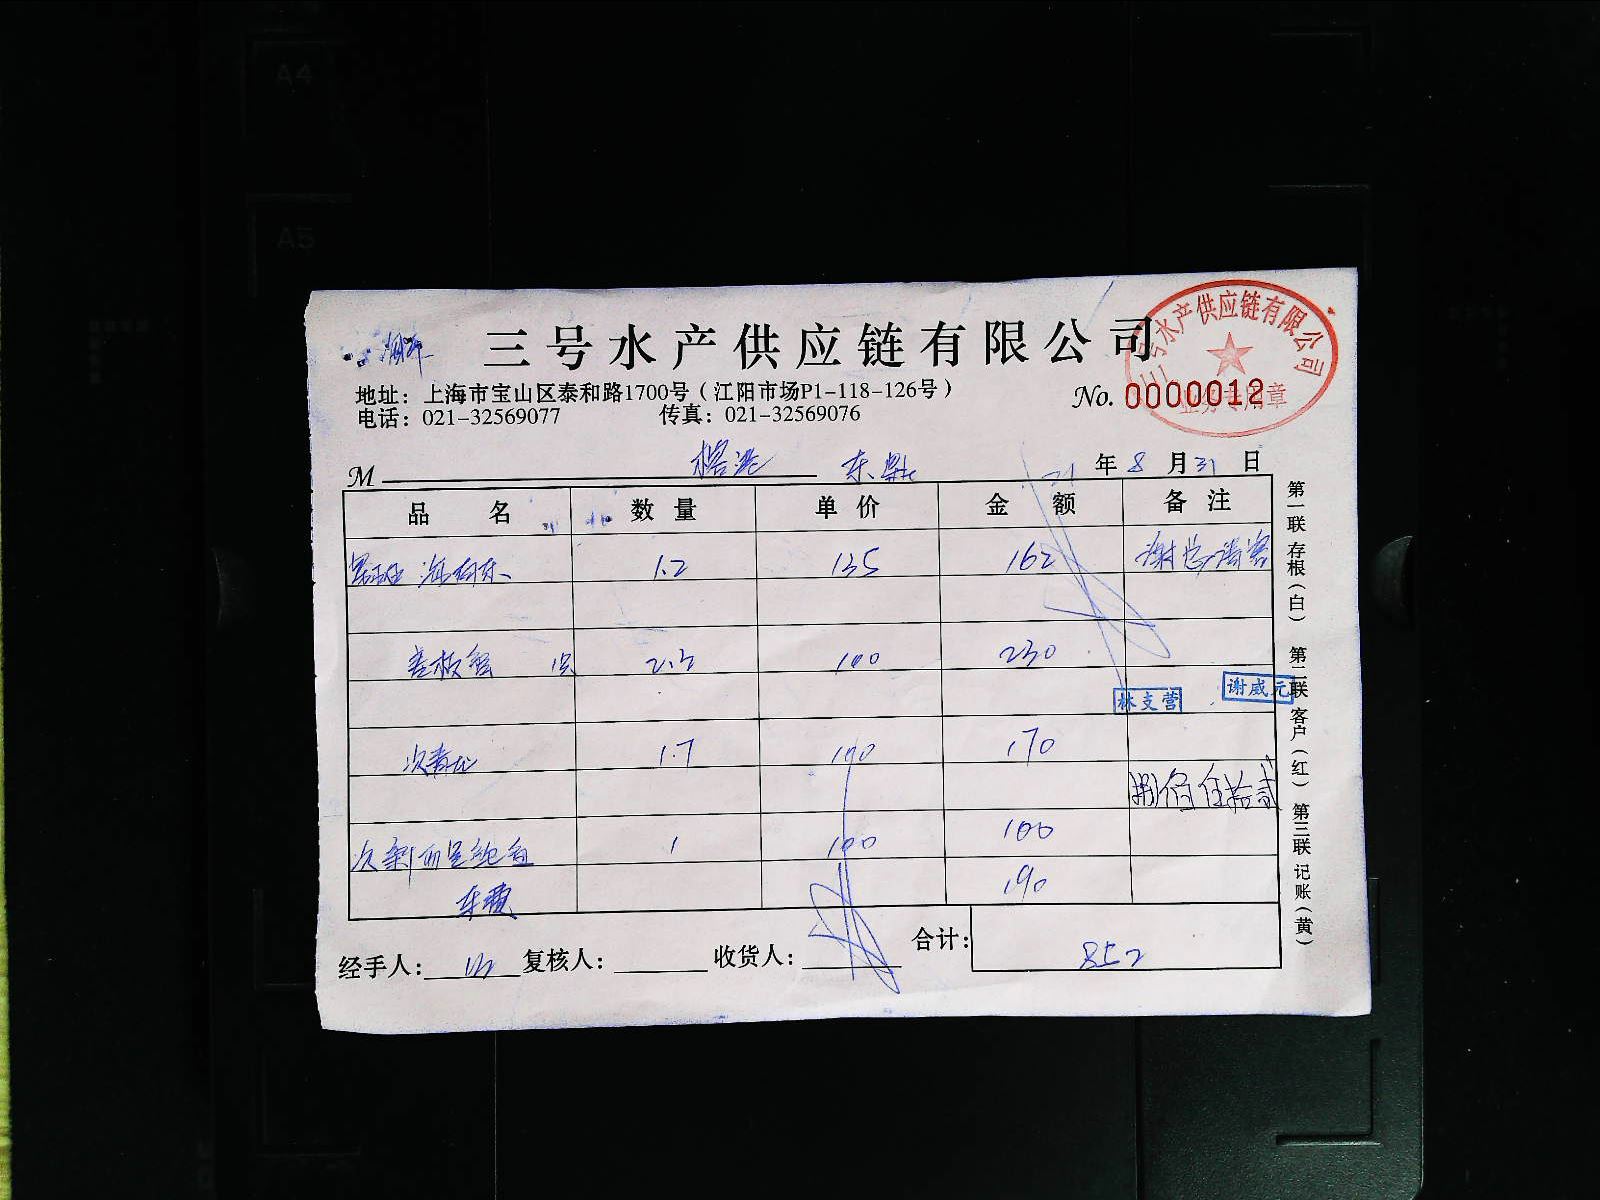 A4
A5
三号水产供应链有限公司
三号水产供应链有限公司
业务专用章
地址：上海市宝山区泰和路1700号（江阳市场P1-118-126号）
No. 0000012
电话：021-32569077 传真：021-32569076
M
21 年 8 月 31 日
品 名 数 量 单 价 金 额 备 注
1.2 135 162 谢总请客
2.3 100 230
林支营 谢威元
1.7 100 170
捌佰伍拾贰
1 100 100
车费 190
合计： 852
经手人： 复核人： 收货人：
第一联 存根（白） 第二联 客户（红） 第三联 记账（黄）